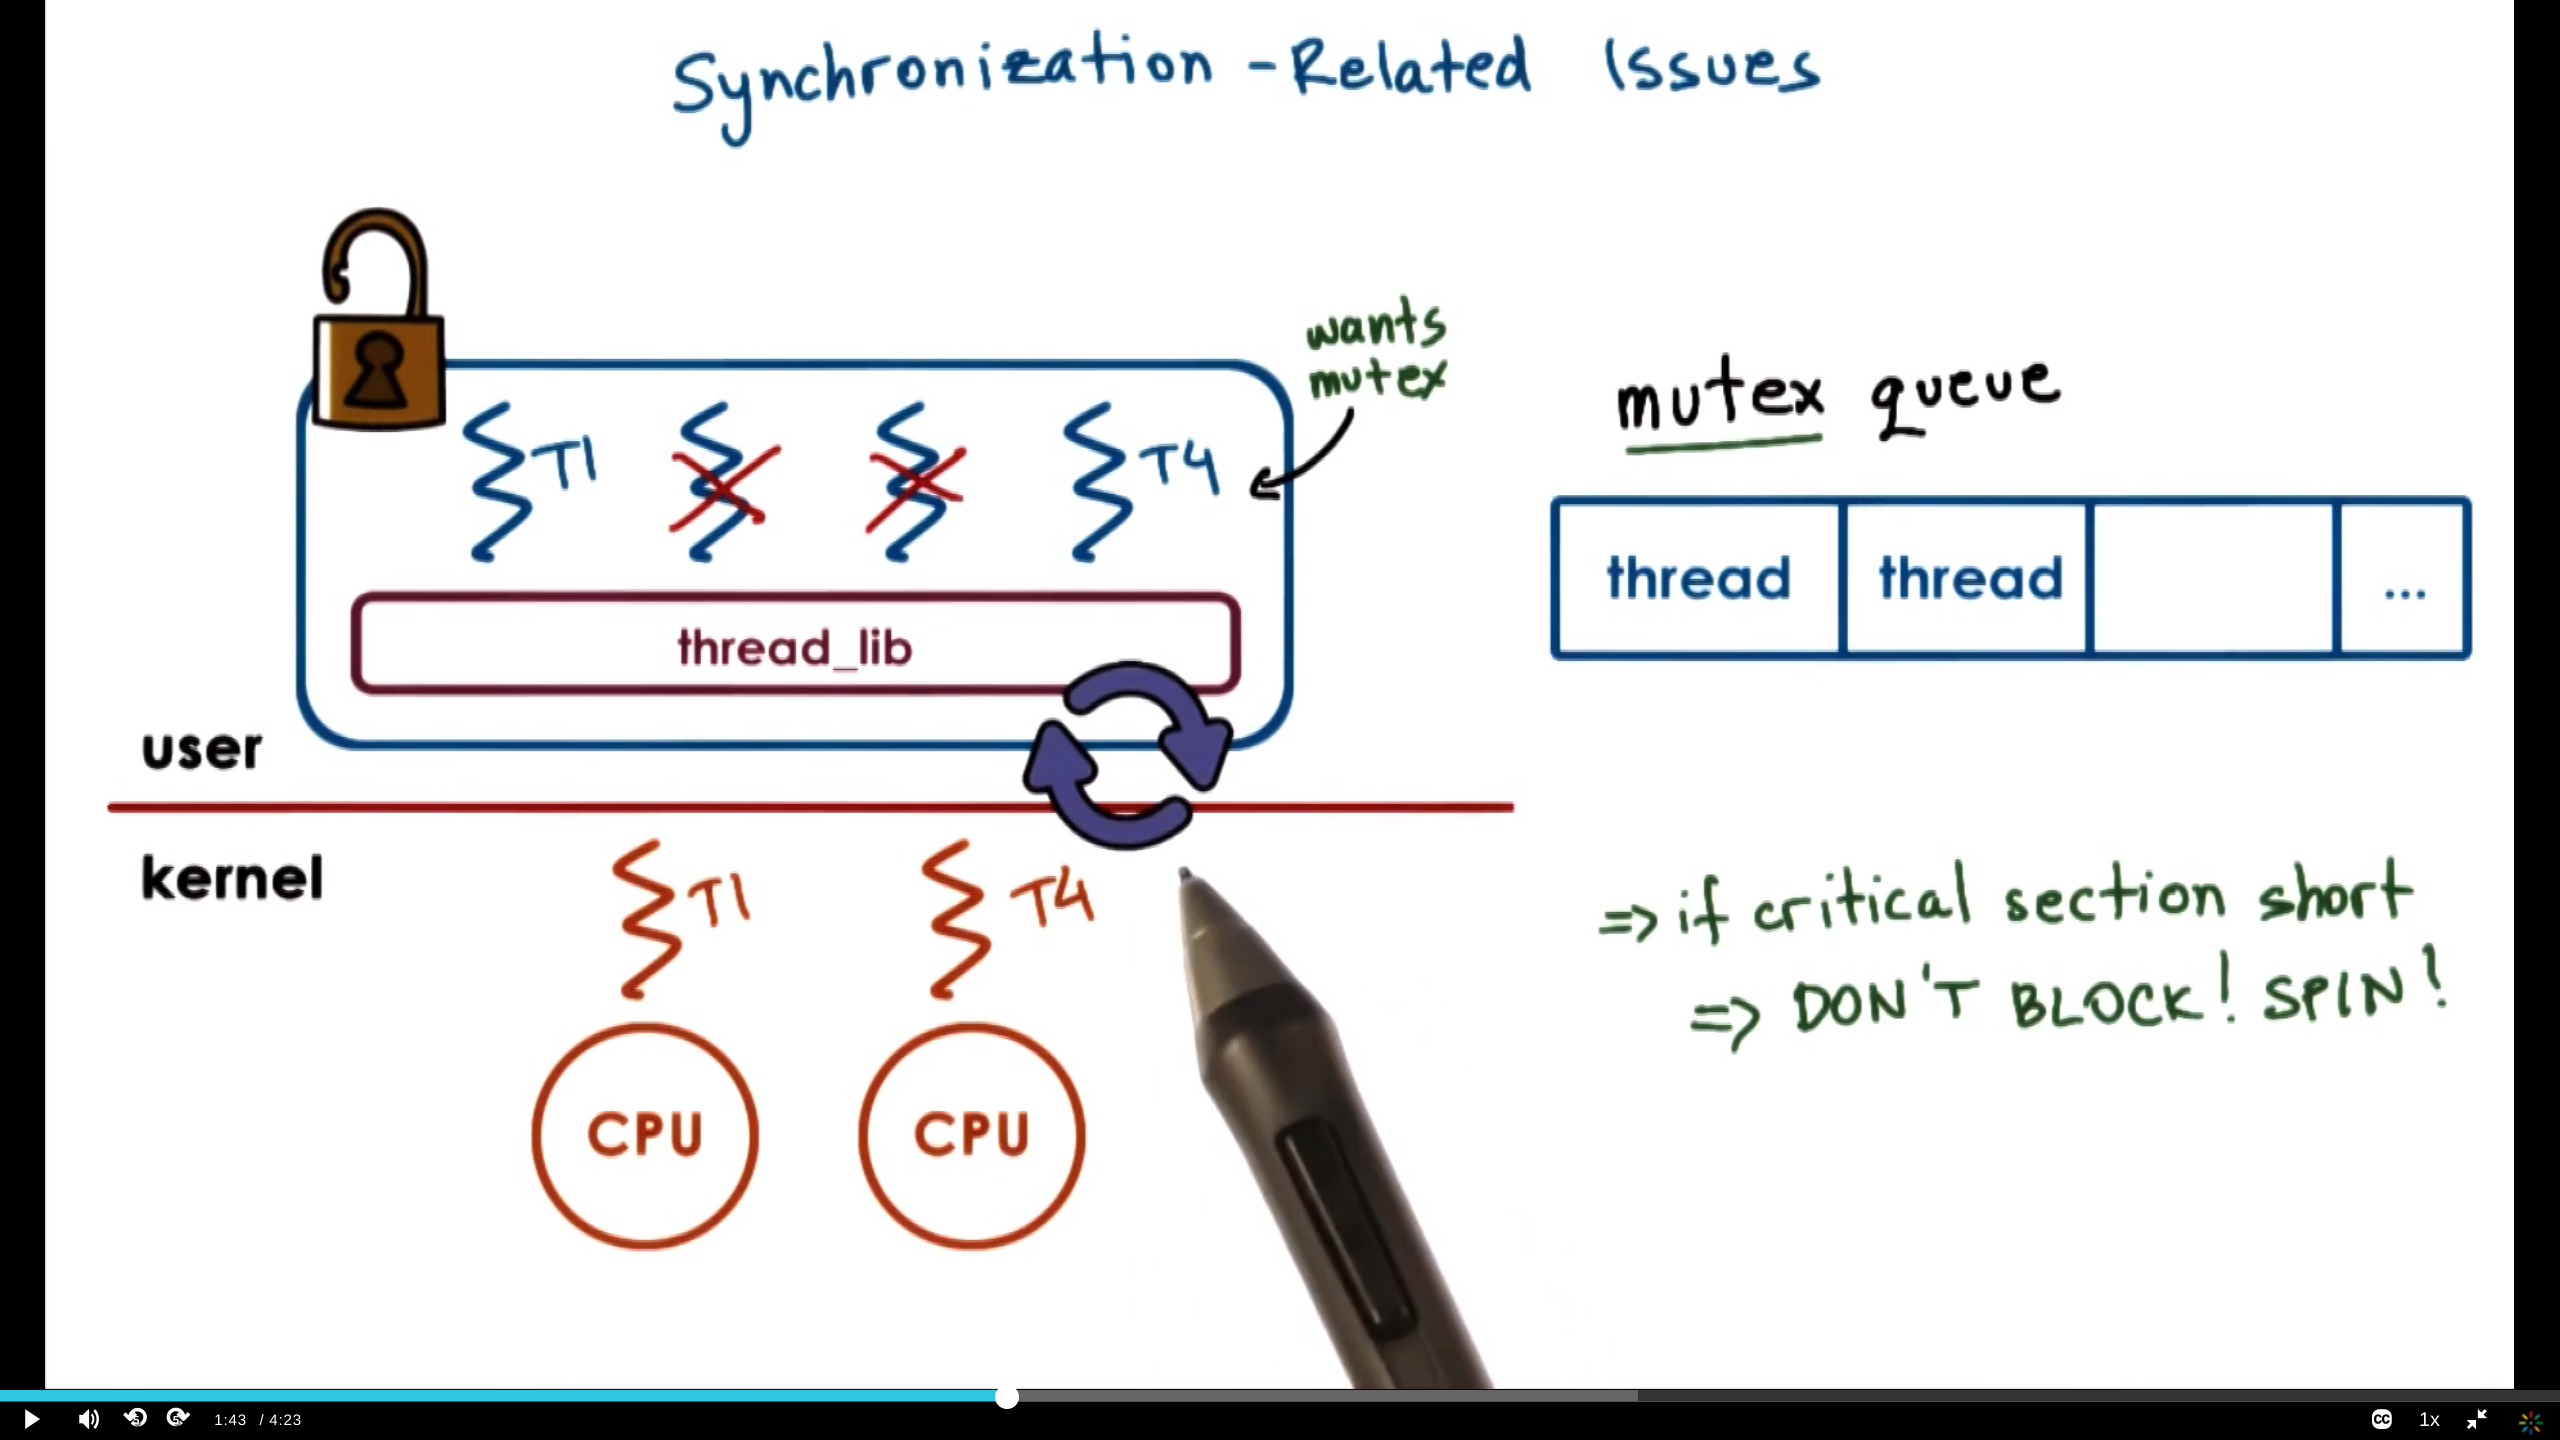 Synchronization - Related Issues
wants
mutex
T1
T4
thread_lib
user
kernel
T1
T4
CPU
CPU
mutex queue
thread
thread
...
=> if critical section short
=> DON'T BLOCK! SPIN!
5
5
1:43 / 4:23
CC
1x